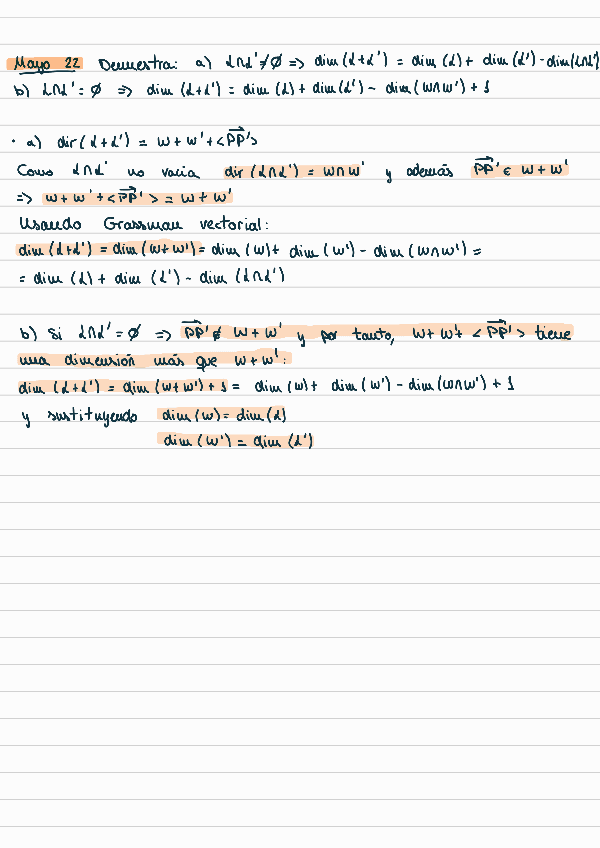 Mayo 22 Demuestra: a) L∩L' ≠ ∅ => dim (L+L') = dim (L) + dim (L') - dim(L∩L')
b) L∩L' = ∅ => dim (L+L') = dim (L) + dim (L') - dim (W∩W') + 1
· a) dir (L+L') = W + W' + <PP'>
Como L∩L' no vacía dir (L∩L') = W∩W' y además PP' ∈ W + W'
=> W + W' + <PP'> = W + W'
Usando Grassman vectorial:
dim (L+L') = dim (W+W') = dim (W) + dim (W') - dim (W∩W') =
= dim (L) + dim (L') - dim (L∩L')
b) Si L∩L' = ∅ => PP' ∉ W + W' y por tanto, W + W' + <PP'> tiene
una dimensión más que W + W':
dim (L+L') = dim (W+W') + 1 = dim (W) + dim (W') - dim (W∩W') + 1
y sustituyendo dim (W) = dim (L)
dim (W') = dim (L')